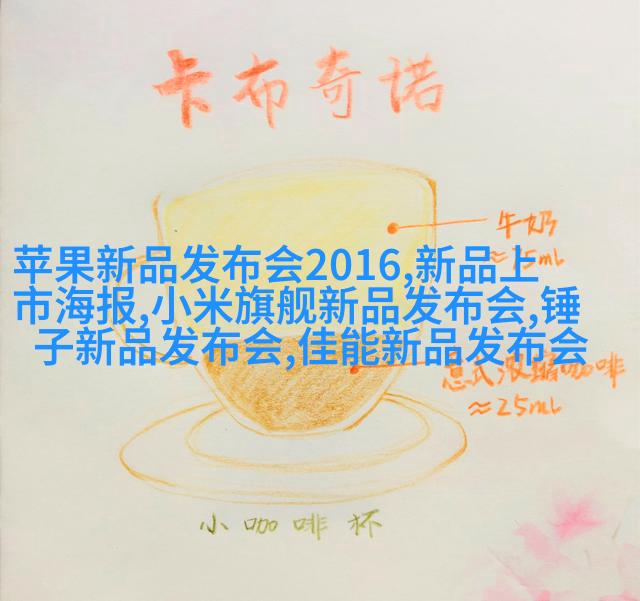 卡布奇诺
牛奶
≈15mL
苹果新品发布会2016,新品上
市海报,小米旗舰新品发布会,锤
子新品发布会,佳能新品发布会
意式浓缩咖啡
≈25mL
小咖啡杯